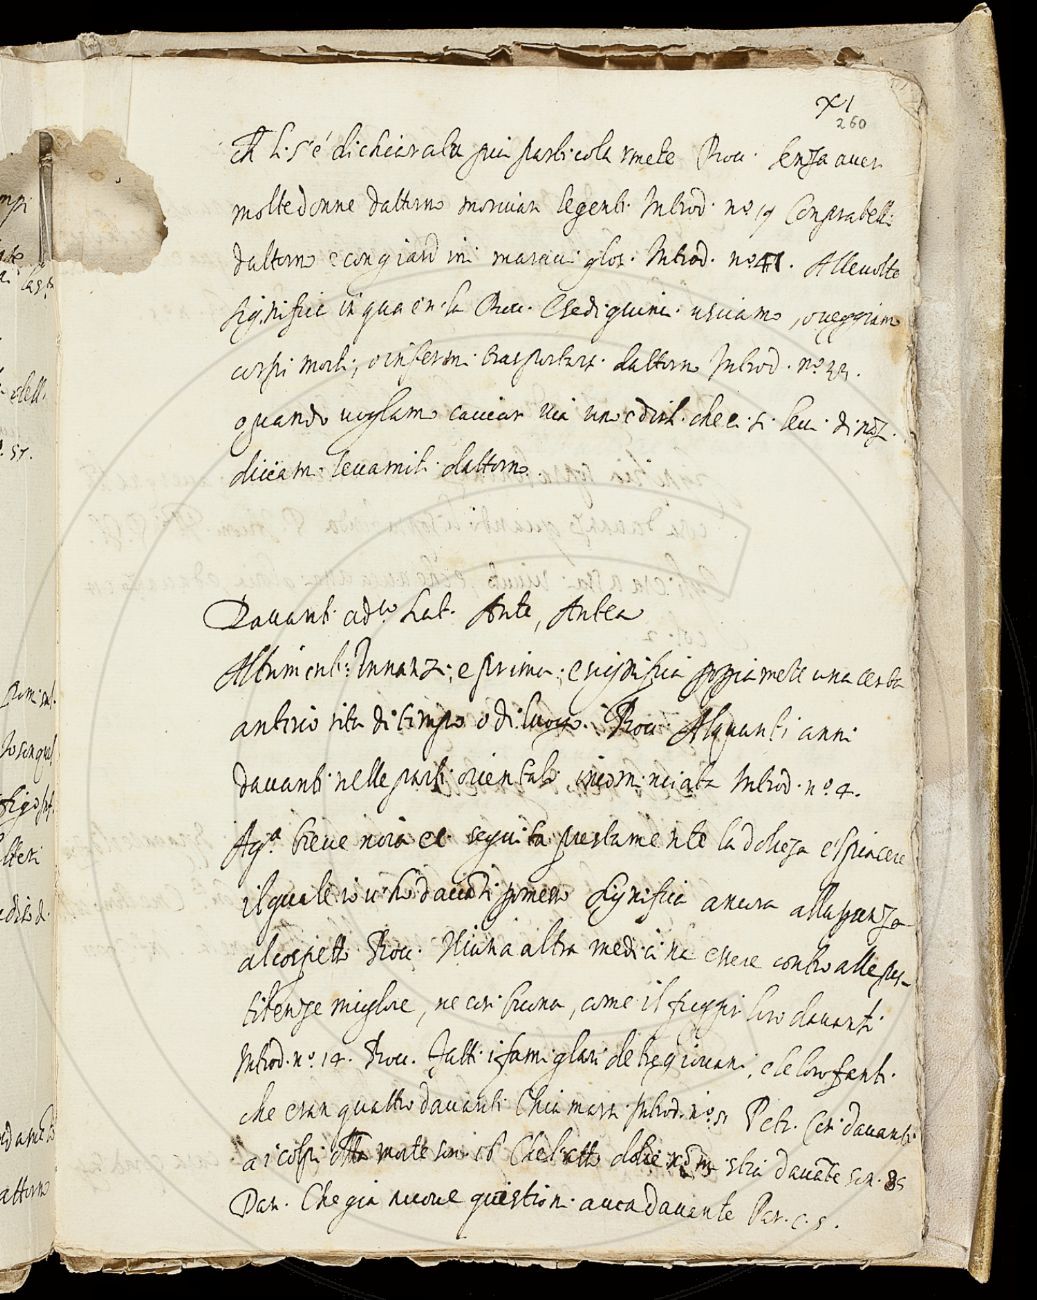 XI
260
A L. 5 è dichiarata più particolarmete Bocc. senza aver
molte donne dattorno morivan le genti. Introd. n.º 19 Con pratelli
dattorno e con giardini maravigliosi. Introd. n.º 41. Alle volte
significa in qua e in là Bocc. E se di quinci usciamo, o veggiamo
corpi morti, o infermi trasportarsi dattorno Introd. n.º 33.
quando vogliamo cacciar via uno che ci si levi di
diciam: levamiti dattorno
Davanti adv.o Lat. Ante, Antea
Altrimenti: Innanzi; e prima; e significa propiamete una certa
anteriorità di tempo o di luogo. Bocc. Alquanti anni
davanti nelle parti orientali incominciata Introd. n.º 4.
A q.a breve noia seguita prestamente la dolcezza e 'l piacere
il quale io v'ho davanti promesso Significa ancora alla presenza
al cospetto Bocc. Niuna altra medicina essere contro alle pes-
tilenze migliore, ne così buona, come il fuggir loro davanti
Introd. n.º 14. Bocc. Fatti i famigliari de tre giovani, e le loro fanti
che eran quattro davanti Chiamarsi Introd. n.º 51 Petr. davanti
a i colpi della morte son. 16 Che davāte son. 85
Dan. Che già nuove questioni avea davante Par. c. 5.